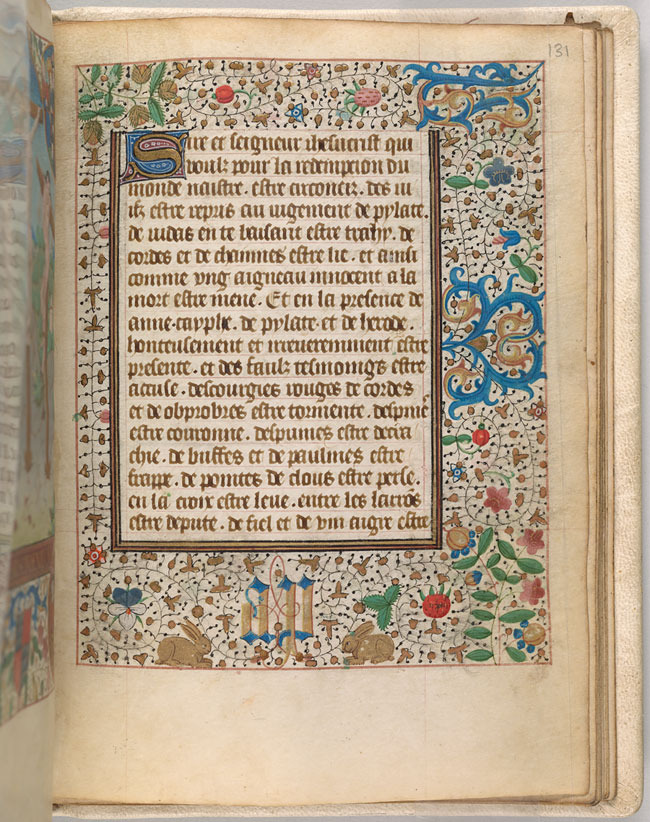 131
Sire et seigneur ihesucrist qui
voulz pour la redempcion du
monde naistre . estre circoncir . des iu
ifz estre repris au iugement de pylate .
de iudas en te baisant estre trahy . de
cordes et de channes estre lie . et ainsi
comme vng aigneau innocent a la
mort estre mene . Et en la presence de
anne . cayphe . de pylate . et de herode .
honteusement et irreueremment estre
presente . et des faulz tesmoings estre
accuse . descourgies rouges de cordes
et de obprobres estre tormente . despine
estre couronne . despumes estre decra
chie . de buffes et de paulmes estre
frappe . de pointes de clous estre perse .
en la croix estre leue . entre les larros
estre depute . de fiel et de vin aigre estre